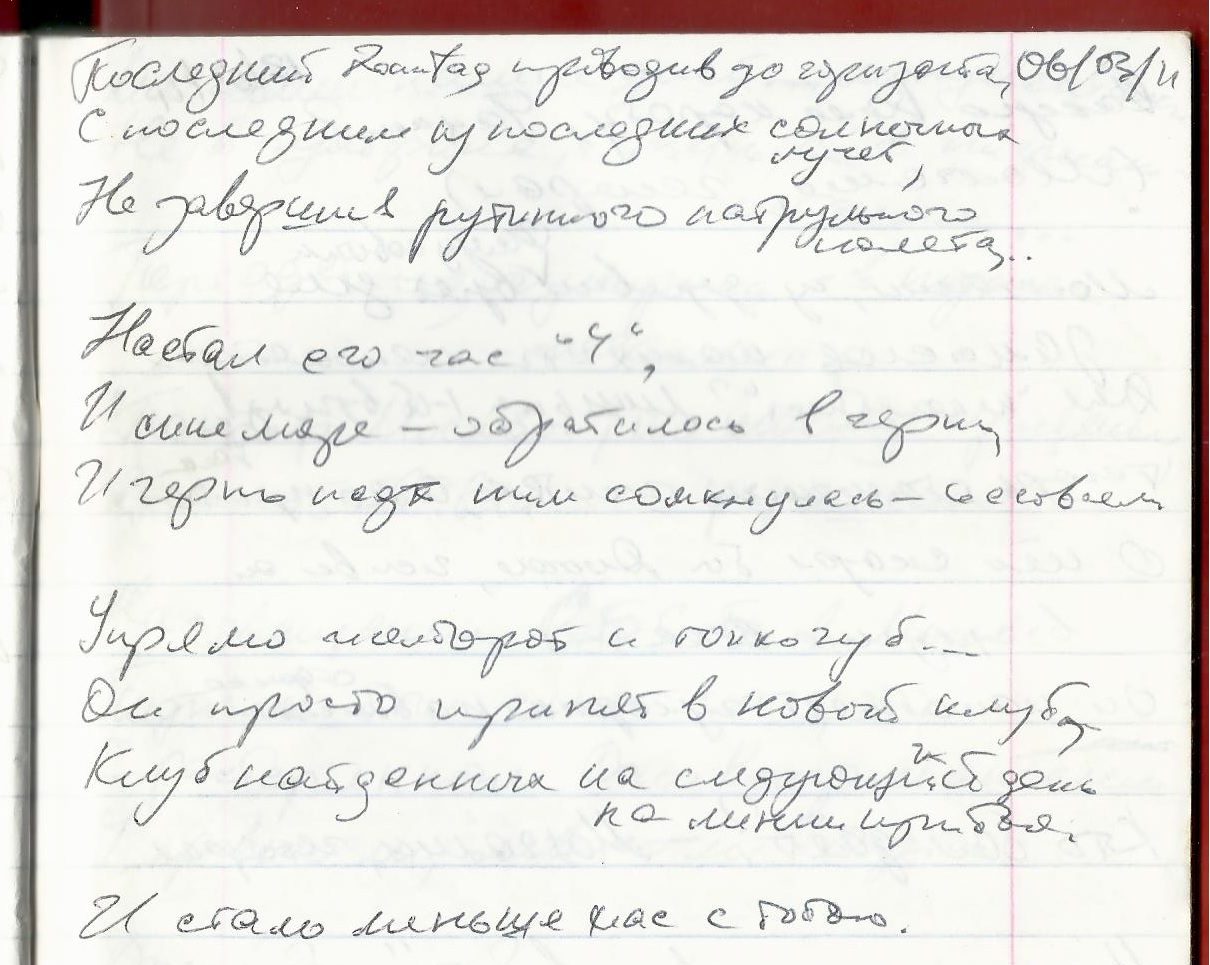 Последний Zoantag проводив до горизонта, 06/03/11
С последним из последних солнечных
лучей,
Не завершив рутинного патрульного
полета...
Настал его час "Ч",
И сине море – обратилось в чернь,
И чернь над ним сомкнулась – совсем
Упрямо желторот и тонкогуб...
Он просто принят в новый клуб,
Клуб найденных на следующий день
на линии прибоя.
И стало меньше нас с тобою.